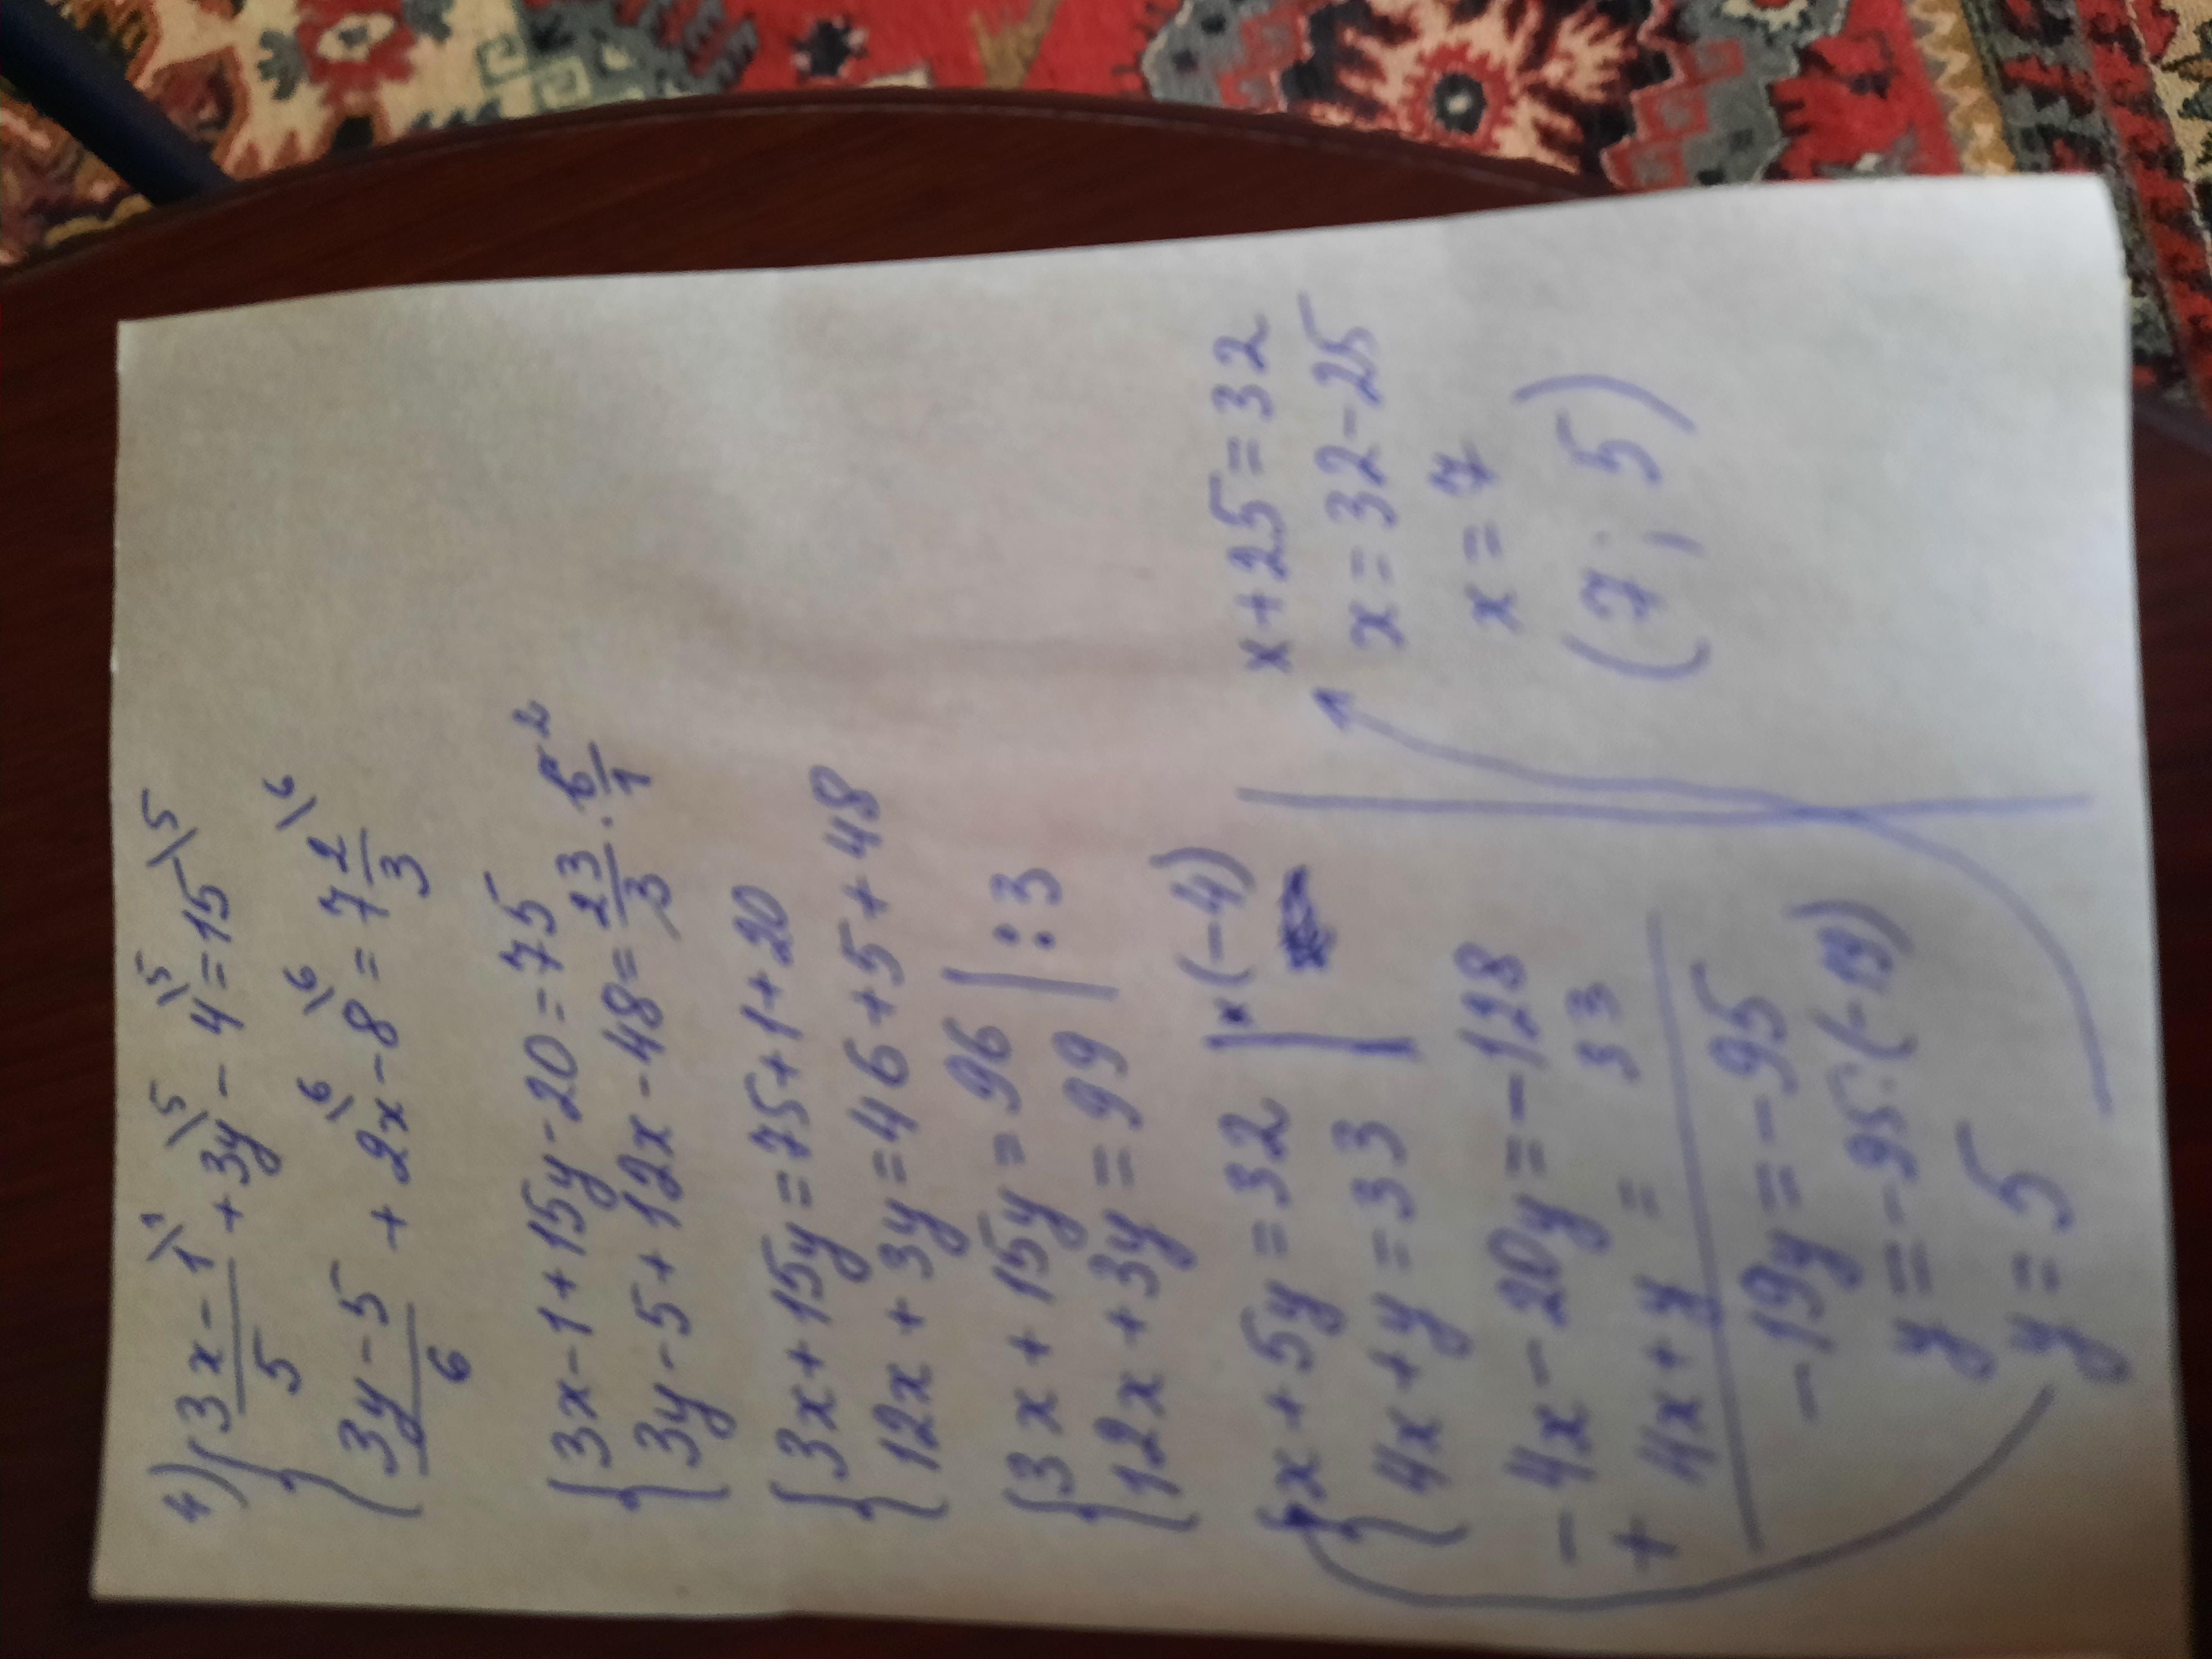 4) { 3x-1\1 / 5 + 3y\5 - 4\5 = 15\5
3y-5 / 6 + 2x\6 - 8\6 = 7 2/3 \6
{ 3x-1+15y-20=75
3y-5+12x-48= 23/3 · 6²/1
{ 3x+15y=75+1+20
12x+3y=46+5+48
{ 3x+15y=96 | :3
12x+3y=99
{ x+5y=32 | x(-4)
4x+y=33
-4x-20y=-128
+ 4x+y = 33
-19y=-95
y=-95:(-19)
y=5
x+25=32
x=32-25
x=7
(7;5)